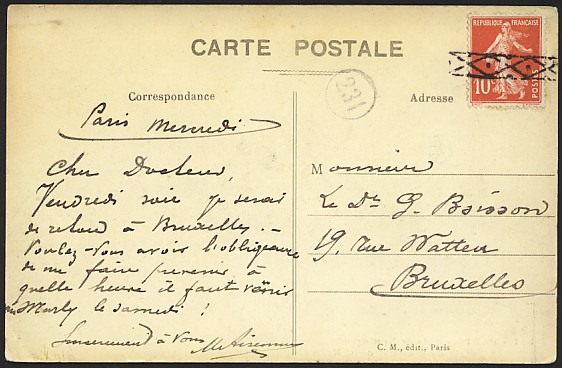 CARTE POSTALE
RÉPUBLIQUE FRANÇAISE
10
POSTES
231
Correspondance
Adresse
Paris Mercredi
Cher Docteur,
Vendredi soir je serai
de retour à Bruxelles. -
Voulez-vous avoir l'obligeance
de me faire prévenir à
quelle heure il faut venir
Marly le samedi !
Sincèrement à vous
Monsieur
Le Dr G. Boisson
19, rue Watteeu
Bruxelles
C. M., édit., Paris